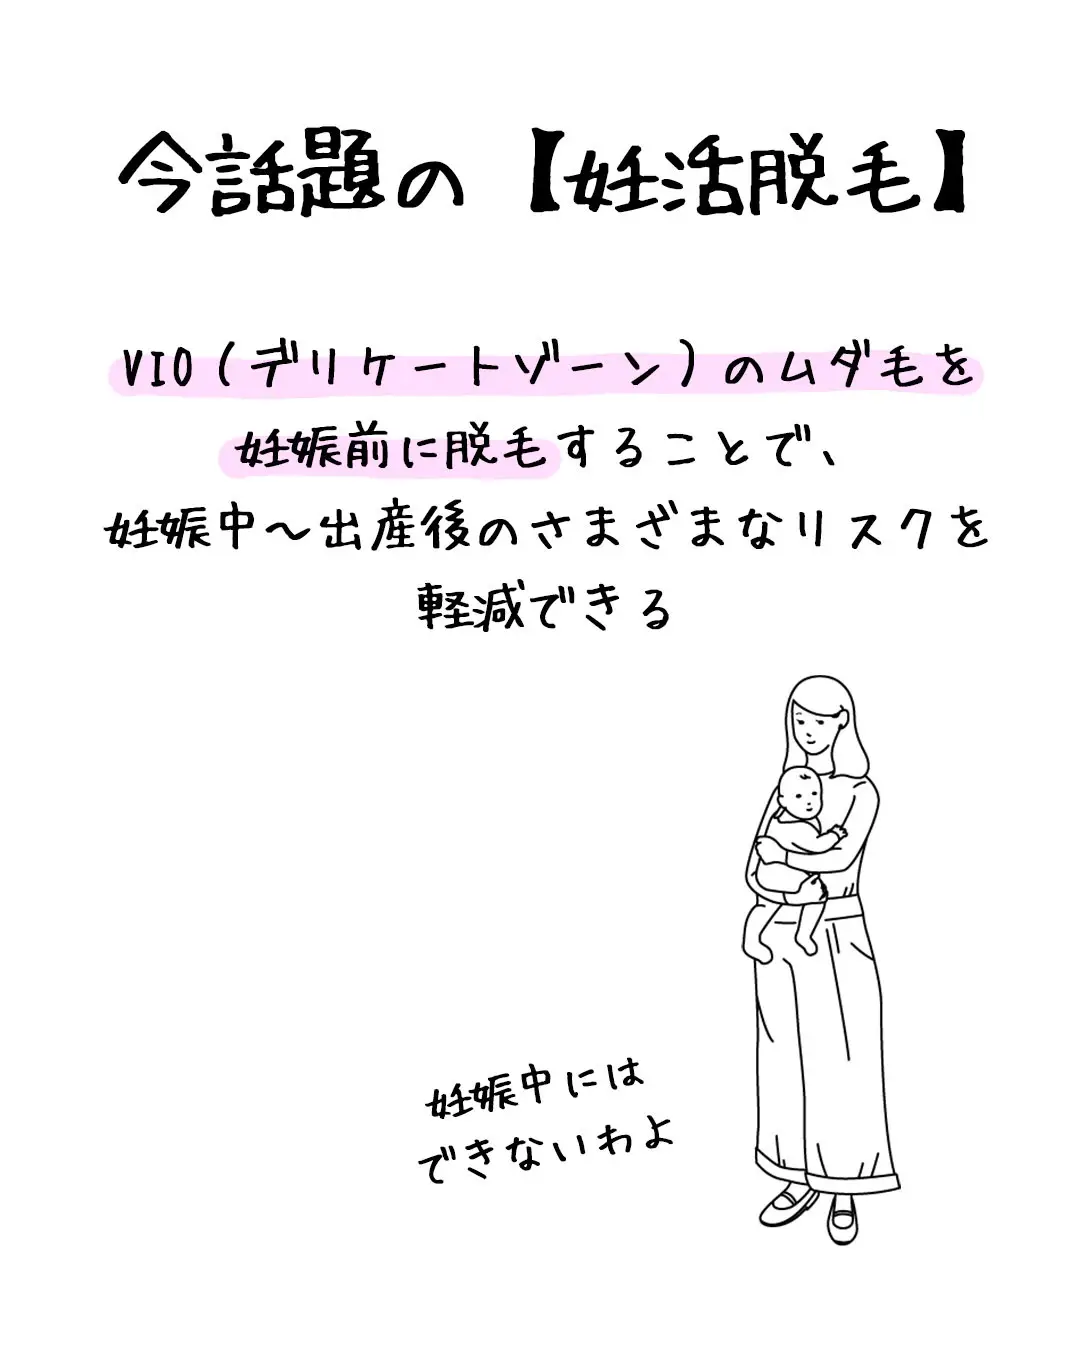 今話題の【妊活脱毛】
VIO(デリケートゾーン)のムダ毛を
妊娠前に脱毛することで、
妊娠中〜出産後のさまざまなリスクを
軽減できる
妊娠中には
できないわよ